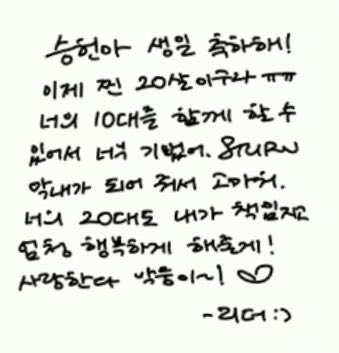 승헌아 생일 축하해!
이제 찐 20살이구나 ㅠㅠ
너의 10대를 함께 할 수
있어서 너무 기뻤어. 8TURN
막내가 되어 줘서 고마워.
너의 20대도 내가 책임지고
엄청 행복하게 해줄게!
사랑한다 박뭉이~! ♡
-리더:)